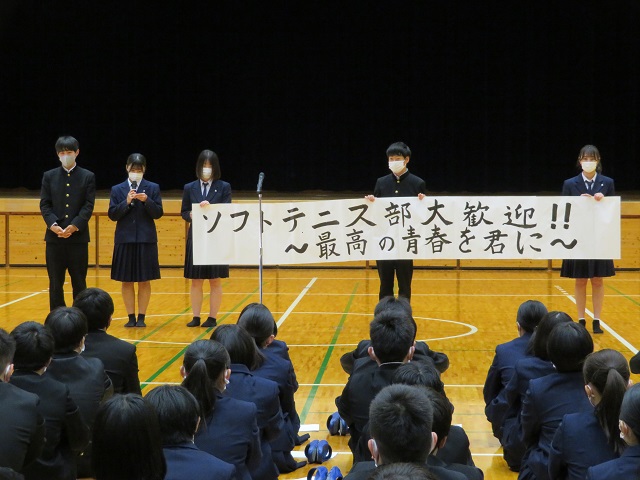 ソフトテニス部大歓迎!!
～最高の青春を君に～